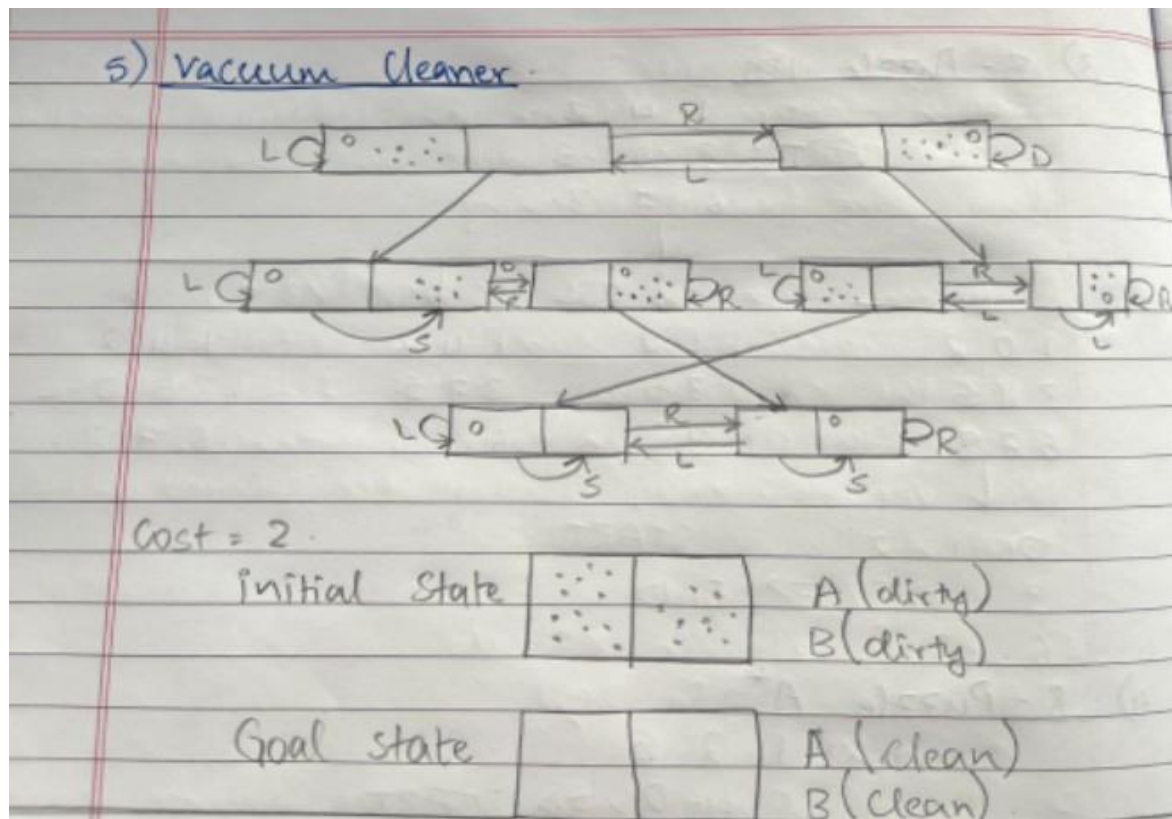 5) Vacuum Cleaner.
R
L D
L
L R L R
S L L
L R R
L
S S
Cost = 2.
initial State A (dirty)
B (dirty)
Goal state A (clean)
B (clean)